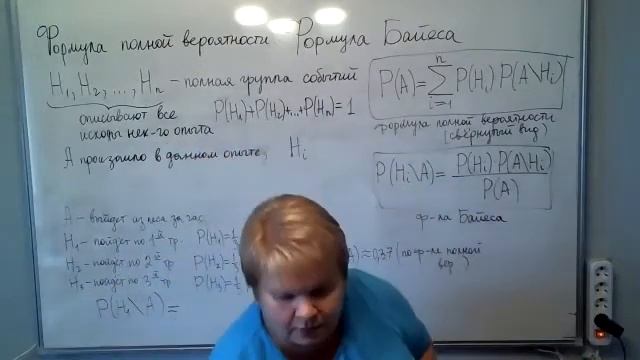 Формула полной вероятности Формула Байеса
H₁, H₂, ..., Hₙ – полная группа событий
описывают все
исходы нек-го опыта
P(H₁)+P(H₂)+...+P(Hₙ)=1
A произошло в данном опыте, Hᵢ
P(A)=∑ᵢ₌₁ⁿ P(Hᵢ) P(A\Hᵢ)
формула полной вероятности
(свёрнутый вид)
P(Hᵢ\A)= P(Hᵢ) P(A\Hᵢ) / P(A)
ф-ла Байеса
A – выйдет из леса за час
H₁ – пойдет по 1ой тр. P(H₁)=
H₂ – пойдет по 2ой тр P(H₂)=
H₃ – пойдет по 3ой тр P(H₃)=
A) ≈ 0,37 (по ф-ле полной
вер)
P(H₁\A)=